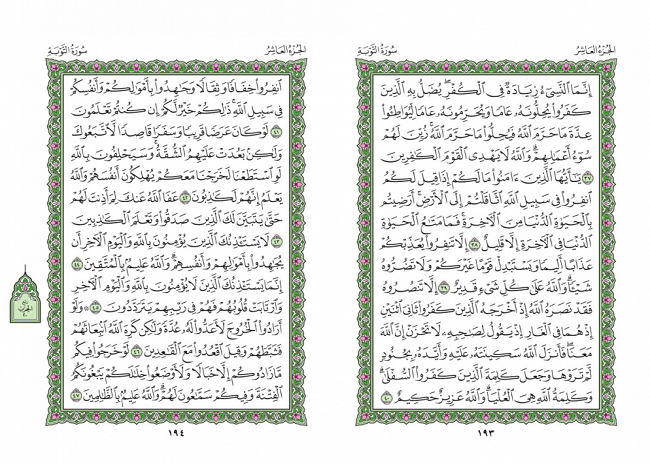 الجُزءُ العَاشِرُ سُورَةُ التَّوْبَةِ
إِنَّمَا ٱلنَّسِىٓءُ زِيَادَةٌ فِى ٱلْكُفْرِ ۖ يُضَلُّ بِهِ ٱلَّذِينَ
كَفَرُوا۟ يُحِلُّونَهُۥ عَامًا وَيُحَرِّمُونَهُۥ عَامًا لِّيُوَاطِـُٔوا۟
عِدَّةَ مَا حَرَّمَ ٱللَّهُ فَيُحِلُّوا۟ مَا حَرَّمَ ٱللَّهُ ۚ زُيِّنَ لَهُمْ
سُوٓءُ أَعْمَـٰلِهِمْ ۗ وَٱللَّهُ لَا يَهْدِى ٱلْقَوْمَ ٱلْكَـٰفِرِينَ
٣٧ يَـٰٓأَيُّهَا ٱلَّذِينَ ءَامَنُوا۟ مَا لَكُمْ إِذَا قِيلَ لَكُمُ
ٱنفِرُوا۟ فِى سَبِيلِ ٱللَّهِ ٱثَّاقَلْتُمْ إِلَى ٱلْأَرْضِ ۚ أَرَضِيتُم
بِٱلْحَيَوٰةِ ٱلدُّنْيَا مِنَ ٱلْـَٔاخِرَةِ ۚ فَمَا مَتَـٰعُ ٱلْحَيَوٰةِ
ٱلدُّنْيَا فِى ٱلْـَٔاخِرَةِ إِلَّا قَلِيلٌ ٣٨ إِلَّا تَنفِرُوا۟ يُعَذِّبْكُمْ
عَذَابًا أَلِيمًا وَيَسْتَبْدِلْ قَوْمًا غَيْرَكُمْ وَلَا تَضُرُّوهُ
شَيْـًٔا ۗ وَٱللَّهُ عَلَىٰ كُلِّ شَىْءٍ قَدِيرٌ ٣٩ إِلَّا تَنصُرُوهُ
فَقَدْ نَصَرَهُ ٱللَّهُ إِذْ أَخْرَجَهُ ٱلَّذِينَ كَفَرُوا۟ ثَانِىَ ٱثْنَيْنِ
إِذْ هُمَا فِى ٱلْغَارِ إِذْ يَقُولُ لِصَـٰحِبِهِۦ لَا تَحْزَنْ إِنَّ ٱللَّهَ
مَعَنَا ۖ فَأَنزَلَ ٱللَّهُ سَكِينَتَهُۥ عَلَيْهِ وَأَيَّدَهُۥ بِجُنُودٍ
لَّمْ تَرَوْهَا وَجَعَلَ كَلِمَةَ ٱلَّذِينَ كَفَرُوا۟ ٱلسُّفْلَىٰ ۗ
وَكَلِمَةُ ٱللَّهِ هِىَ ٱلْعُلْيَا ۗ وَٱللَّهُ عَزِيزٌ حَكِيمٌ ٤٠
١٩٣
الجُزءُ العَاشِرُ سُورَةُ التَّوْبَةِ
ٱنفِرُوا۟ خِفَافًا وَثِقَالًا وَجَـٰهِدُوا۟ بِأَمْوَٰلِكُمْ وَأَنفُسِكُمْ
فِى سَبِيلِ ٱللَّهِ ۚ ذَٰلِكُمْ خَيْرٌ لَّكُمْ إِن كُنتُمْ تَعْلَمُونَ
٤١ لَوْ كَانَ عَرَضًا قَرِيبًا وَسَفَرًا قَاصِدًا لَّٱتَّبَعُوكَ
وَلَـٰكِنۢ بَعُدَتْ عَلَيْهِمُ ٱلشُّقَّةُ ۚ وَسَيَحْلِفُونَ بِٱللَّهِ
لَوِ ٱسْتَطَعْنَا لَخَرَجْنَا مَعَكُمْ يُهْلِكُونَ أَنفُسَهُمْ وَٱللَّهُ
يَعْلَمُ إِنَّهُمْ لَكَـٰذِبُونَ ٤٢ عَفَا ٱللَّهُ عَنكَ لِمَ أَذِنتَ لَهُمْ
حَتَّىٰ يَتَبَيَّنَ لَكَ ٱلَّذِينَ صَدَقُوا۟ وَتَعْلَمَ ٱلْكَـٰذِبِينَ
٤٣ لَا يَسْتَـْٔذِنُكَ ٱلَّذِينَ يُؤْمِنُونَ بِٱللَّهِ وَٱلْيَوْمِ ٱلْـَٔاخِرِ أَن
يُجَـٰهِدُوا۟ بِأَمْوَٰلِهِمْ وَأَنفُسِهِمْ ۗ وَٱللَّهُ عَلِيمٌۢ بِٱلْمُتَّقِينَ ٤٤
إِنَّمَا يَسْتَـْٔذِنُكَ ٱلَّذِينَ لَا يُؤْمِنُونَ بِٱللَّهِ وَٱلْيَوْمِ ٱلْـَٔاخِرِ
وَٱرْتَابَتْ قُلُوبُهُمْ فَهُمْ فِى رَيْبِهِمْ يَتَرَدَّدُونَ ٤٥ وَلَوْ
أَرَادُوا۟ ٱلْخُرُوجَ لَأَعَدُّوا۟ لَهُۥ عُدَّةً وَلَـٰكِن كَرِهَ ٱللَّهُ ٱنۢبِعَاثَهُمْ
فَثَبَّطَهُمْ وَقِيلَ ٱقْعُدُوا۟ مَعَ ٱلْقَـٰعِدِينَ ٤٦ لَوْ خَرَجُوا۟ فِيكُم
مَّا زَادُوكُمْ إِلَّا خَبَالًا وَلَأَوْضَعُوا۟ خِلَـٰلَكُمْ يَبْغُونَكُمُ
ٱلْفِتْنَةَ وَفِيكُمْ سَمَّـٰعُونَ لَهُمْ ۗ وَٱللَّهُ عَلِيمٌۢ بِٱلظَّـٰلِمِينَ ٤٧
١٩٤